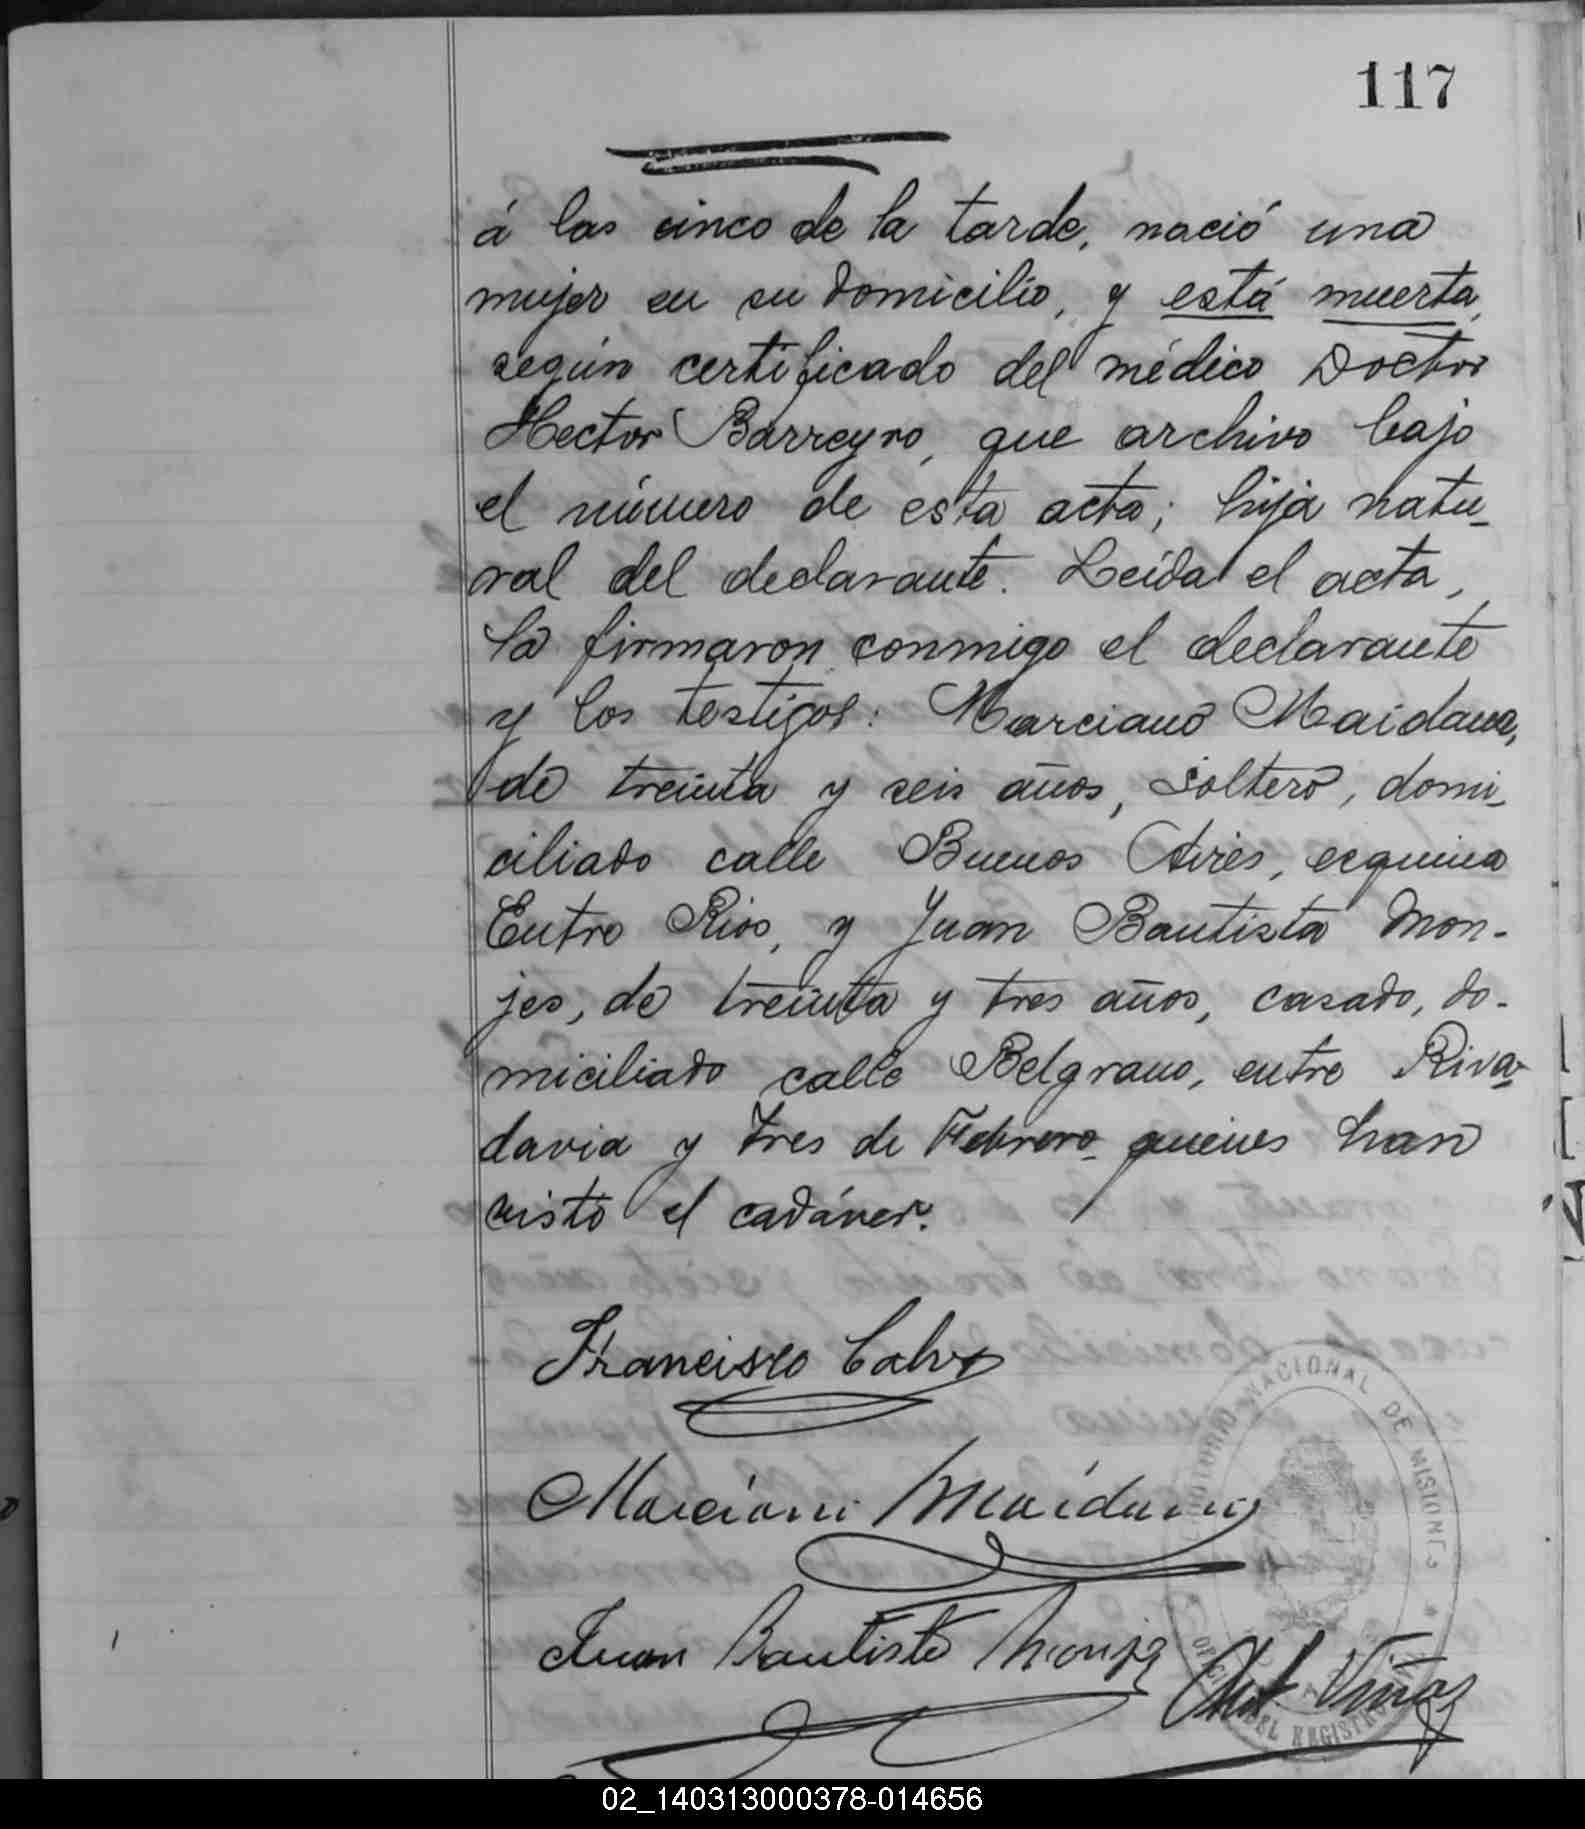 117
á las cinco de la tarde, nació una
mujer en su domicilio, y está muerta,
según certificado del médico Doctor
Hector Barreyro, que archivo bajo
el número de esta acta; hija natu-
ral del declarante. Leída el acta,
la firmaron conmigo el declarante
y los testigos: Marciano Maidana,
de treinta y seis años, soltero, domi-
ciliado calle Buenos Aires, esquina
Entre Rios, y Juan Bautista Mon-
jes, de treinta y tres años, casado, do-
miciliado calle Belgrano, entre Riva-
davia y Tres de Febrero quienes han
visto el cadáver.
Francisco Calvo
Marciano Maidana
Juan Bautista Monjes
Viñas
NACIONAL DE MISIONES
DEL REGISTRO
02_140313000378-014656